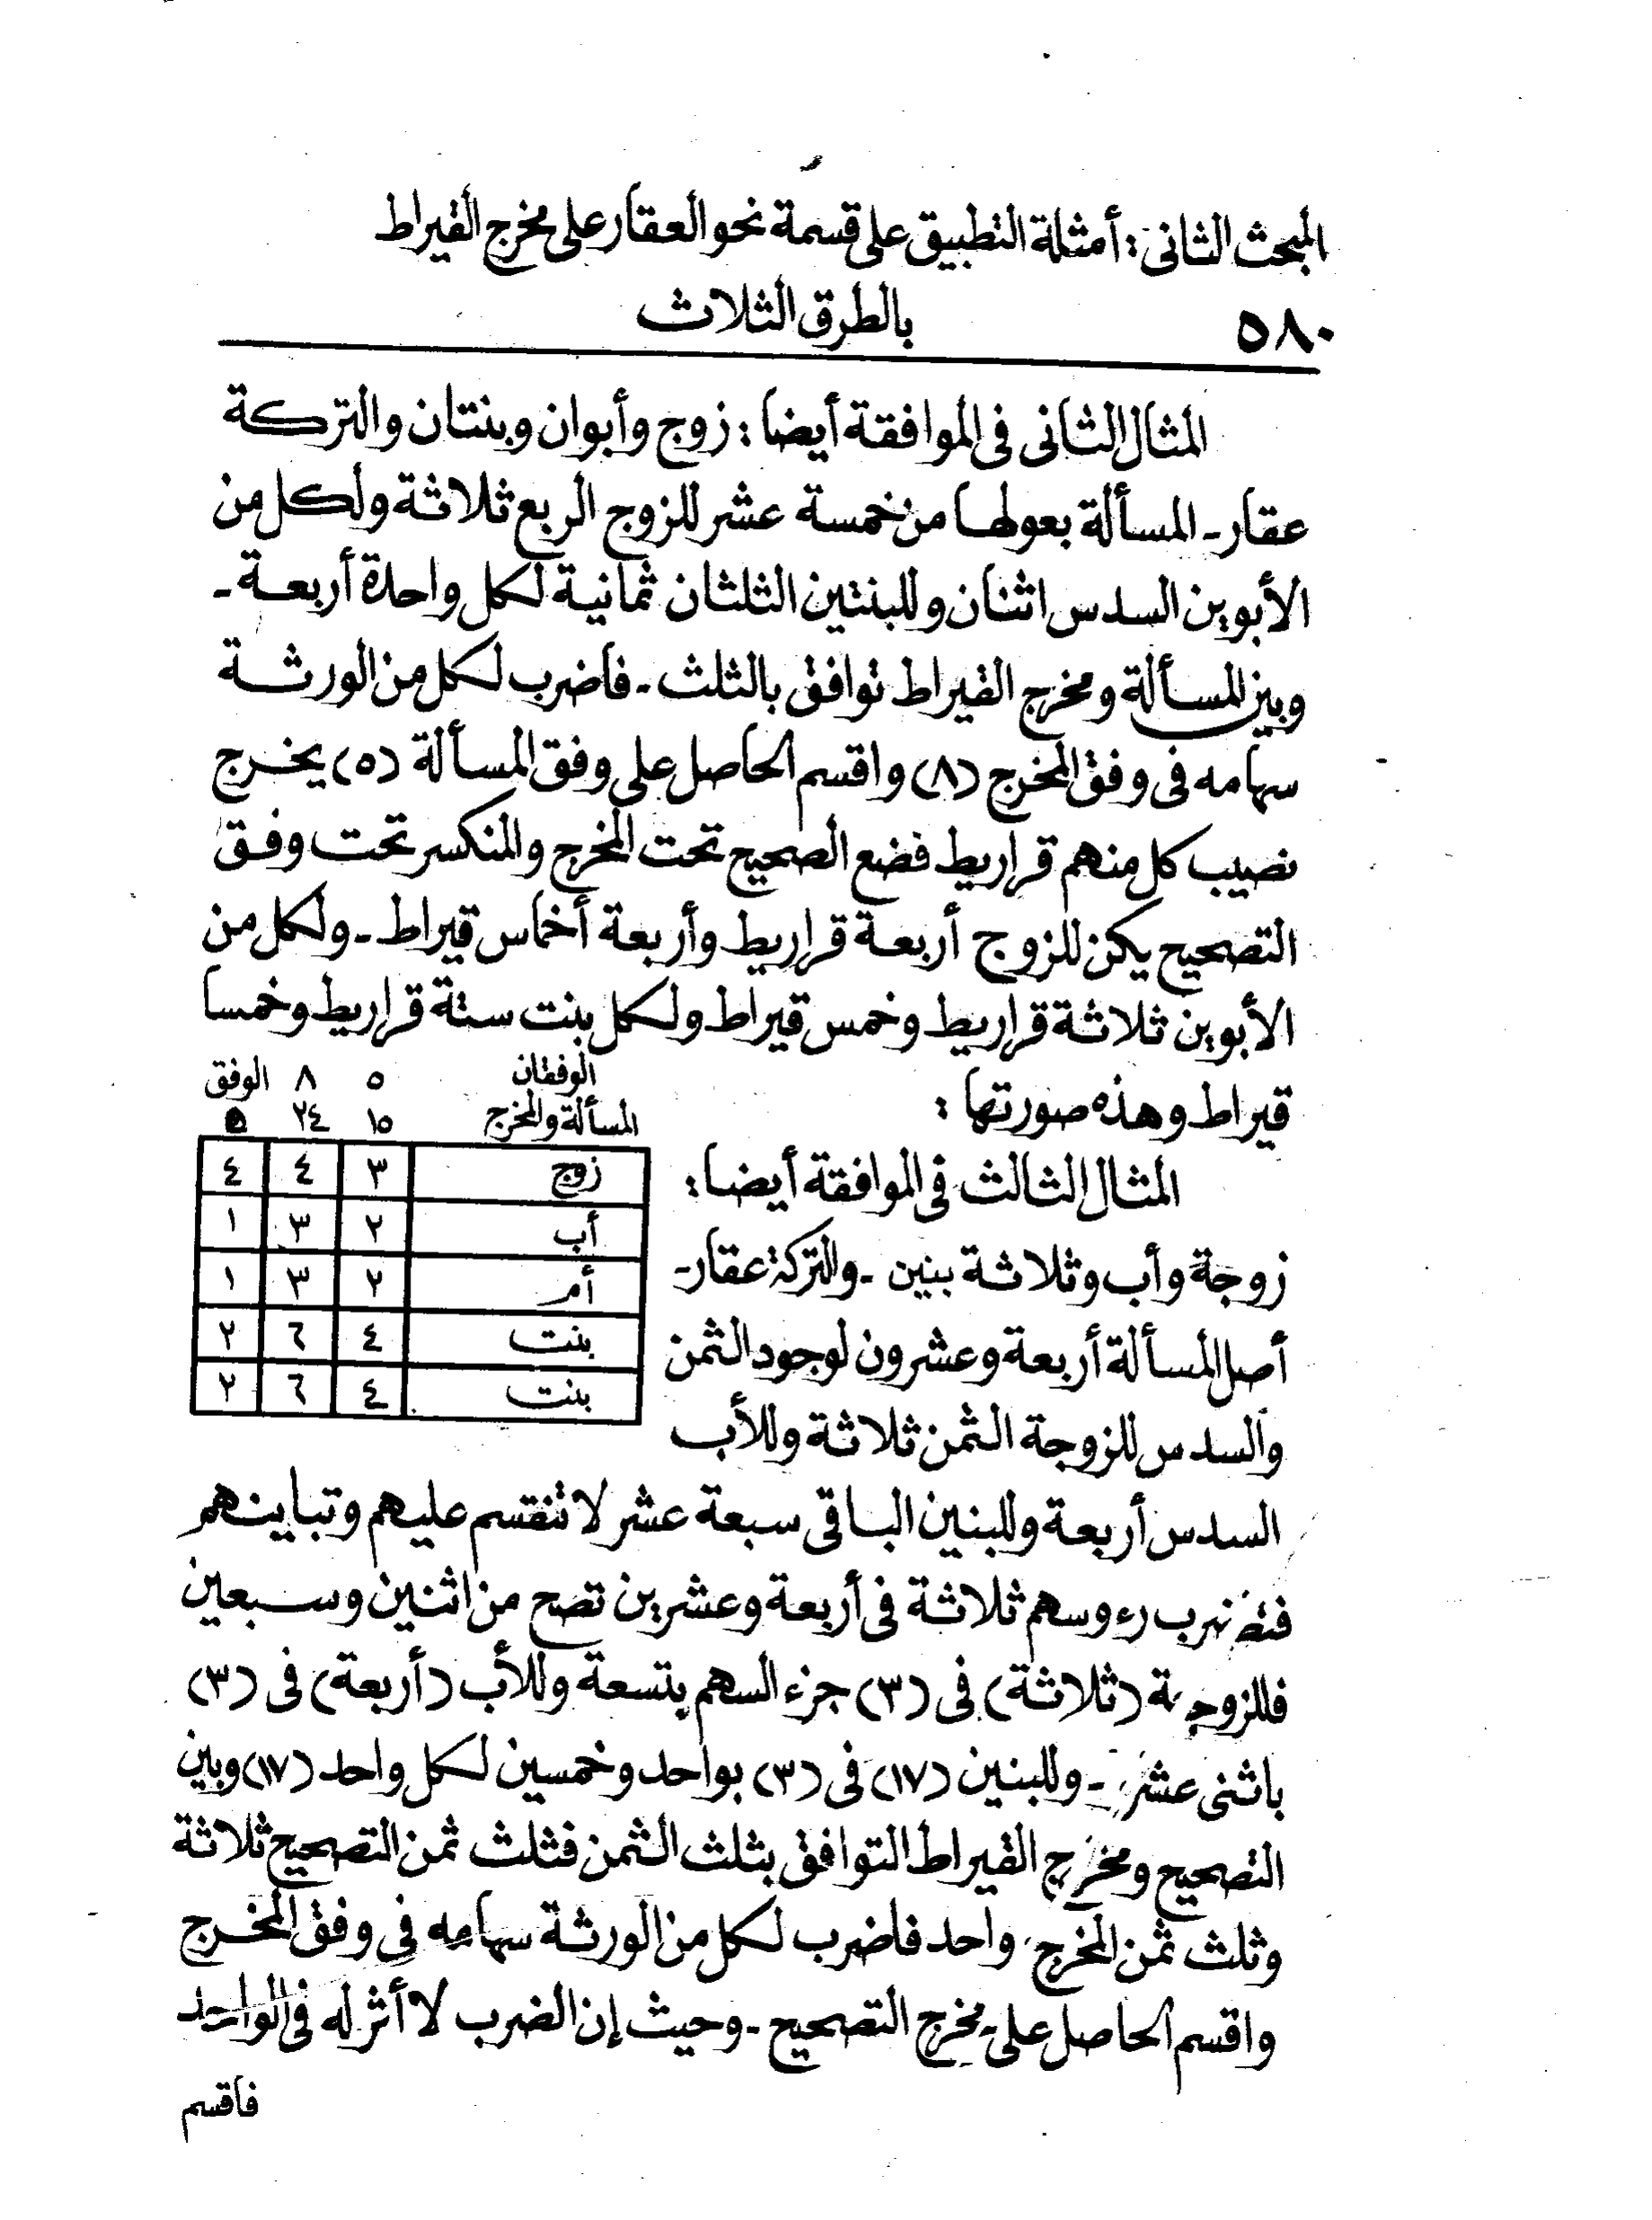 المبحث الثانى : أمثلة التطبيق على قسمة نحو العقار على مخرج القيراط
بالطرق الثلاث
٥٨٠
المثال الثانى فى الموافقة أيضا : زوج وأبوان وبنتان والتركة
عقار ـ المسألة بعولها من خمسة عشر للزوج الربع ثلاثة ولكل من
الأبوين السدس اثنان وللبنتين الثلثان ثمانية لكل واحدة أربعة ـ
وبين المسألة ومخرج القيراط توافق بالثلث ـ فاضرب لكل من الورثة
سهامه فى وفق المخرج (٨) واقسم الحاصل على وفق المسألة (٥) يخرج
نصيب كل منهم قراريط فضع الصحيح تحت المخرج والمنكسر تحت وفق
التصحيح يكن للزوج أربعة قراريط وأربعة أخماس قيراط ـ ولكل من
الأبوين ثلاثة قراريط وخمس قيراط ولكل بنت ستة قراريط وخمسا
قيراط وهذه صورتها :
الوفقان ٥ ٨ الوفق
المسألة والمخرج ١٥ ٢٤ ٥
زوج ٣ ٤ ٤
أب ٢ ٣ ١
أم ٢ ٣ ١
بنت ٤ ٦ ٢
بنت ٤ ٦ ٢
المثال الثالث فى الموافقة أيضا :
زوجة وأب وثلاثة بنين ـ والتركة عقار ـ
أصل المسألة أربعة وعشرون لوجود الثمن
والسدس للزوجة الثمن ثلاثة وللأب
السدس أربعة وللبنين الباقى سبعة عشر لا تنقسم عليهم وتباينهم
فتضرب رءوسهم ثلاثة فى أربعة وعشرين تصح من اثنين وسبعين
فللزوجة (ثلاثة) فى (٣) جزء السهم بتسعة وللأب (أربعة) فى (٣)
باثنى عشر ـ وللبنين (١٧) فى (٣) بواحد وخمسين لكل واحد (١٧) وبين
التصحيح ومخرج القيراط التوافق بثلث الثمن فثلث ثمن التصحيح ثلاثة
وثلث ثمن المخرج واحد فاضرب لكل من الورثة سهامه فى وفق المخرج
واقسم الحاصل على مخرج التصحيح ـ وحيث إن الضرب لا أثر له فى الواحد
فاقسم